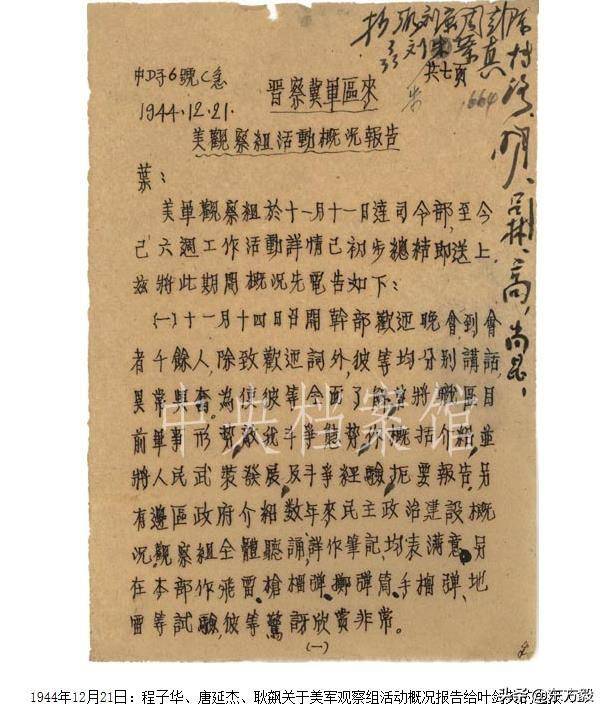 抄
共七頁
664
申D子6號C急
1944.12.21.
晋察冀軍區來
美觀察組活動概況報告
葉:
美軍觀察組於十一月十一日達司令部,至今
已六週工作活動詳情已初步總結即送上,
茲將此期間概況先電告如下:
(一)十一月十四日召開幹部歡迎晚會,到會
者千餘人,除致歡迎詞外,彼等均分別講話,
異常興奮。為使彼等全面了解曾將戰區目
前軍事形勢,敵我斗爭態勢,作概括介紹,並
將人民武裝發展,及斗爭經驗,扼要報告。另
有邊區政府介紹数年來民主政治建設概
況,觀察組全體聽誦,詳作筆記,均表滿意。另
在本部作飛雷、槍榴彈、擲彈筒、手榴彈、地
雷等試驗,彼等驚訝欣賞非常。
(一)
中央档案馆
1944年12月21日：程子华、唐延杰、耿飙关于美军观察组活动概况报告给叶剑英的电报
头条 @东方毅